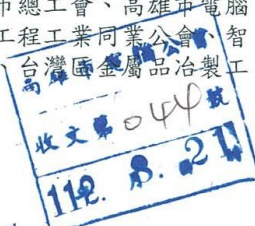 市總工會、高雄市電腦
工程工業同業公會、智
、台灣區金屬品冶製工
高雄市電腦公會
收文第044號
112. 8. 21